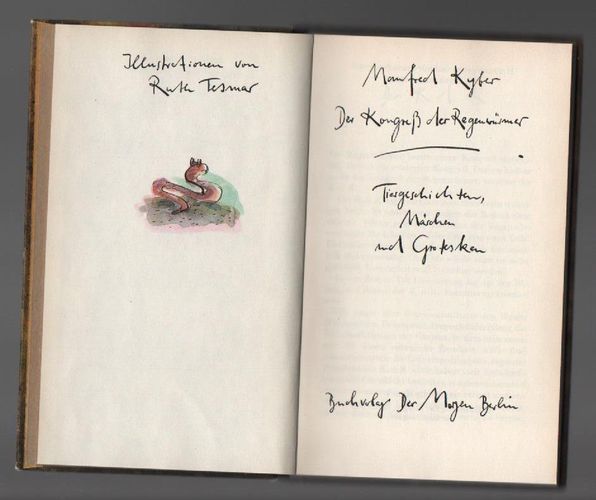 Illustrationen von
Ruth Tesmar
Manfred Kyber
Der Kongreß der Regenwürmer
Tiergeschichten,
Märchen
und Grotesken
Buchverlag Der Morgen Berlin